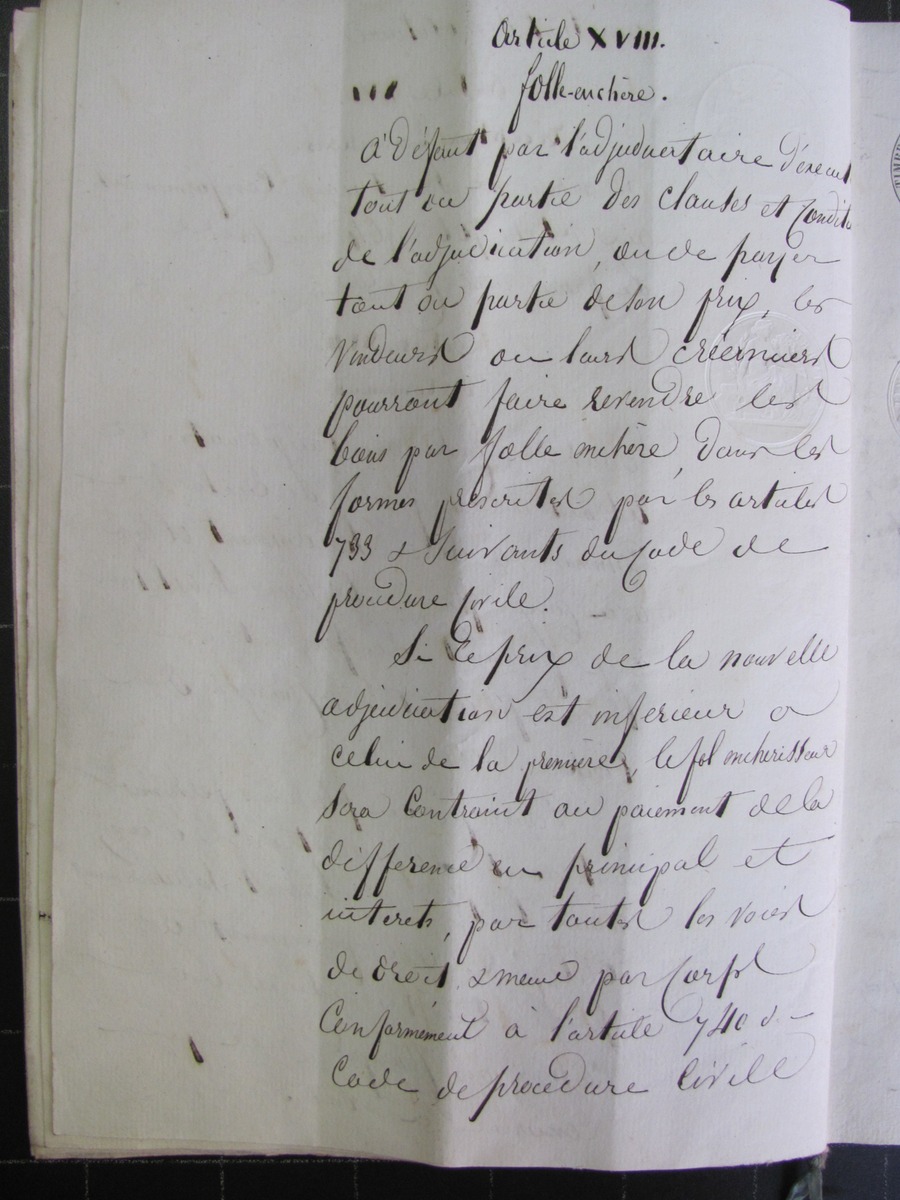 Article XVIII.
folle-enchère.
A Défaut par l'adjudicataire d'exécut
tout ou partie Des clauses et Condit
de l'adjudication, ou de payer
tout ou partie de son prix, les
Vendeurs ou leurs créanciers
pourront faire revendre les
biens par folle enchère, Dans les
formes prescrites par les articles
733 & Suivants du Code de
procédure Civile.
Si le prix de la nouvelle
adjudication est inférieur a
celui de la première, le fol enchérisseur
Sera Contraint au paiement de la
différence en principal et
intérets, par toutes les voies
de droit, & meme par Corps
Conformément à l'article 740 d
Code de procédure Civile